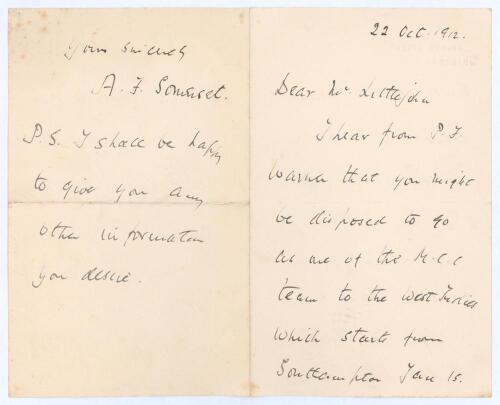 22 Oct. 1912.
Dear Mr. Littlejohn
I hear from P.F.
Warner that you might
be disposed to go
as one of the M.C.C
team to the West Indies
which starts from
Southampton Jan 15.
Yours sincerely
A. F. Somerset.
P.S. I shall be happy
to give you any
other information
you desire.